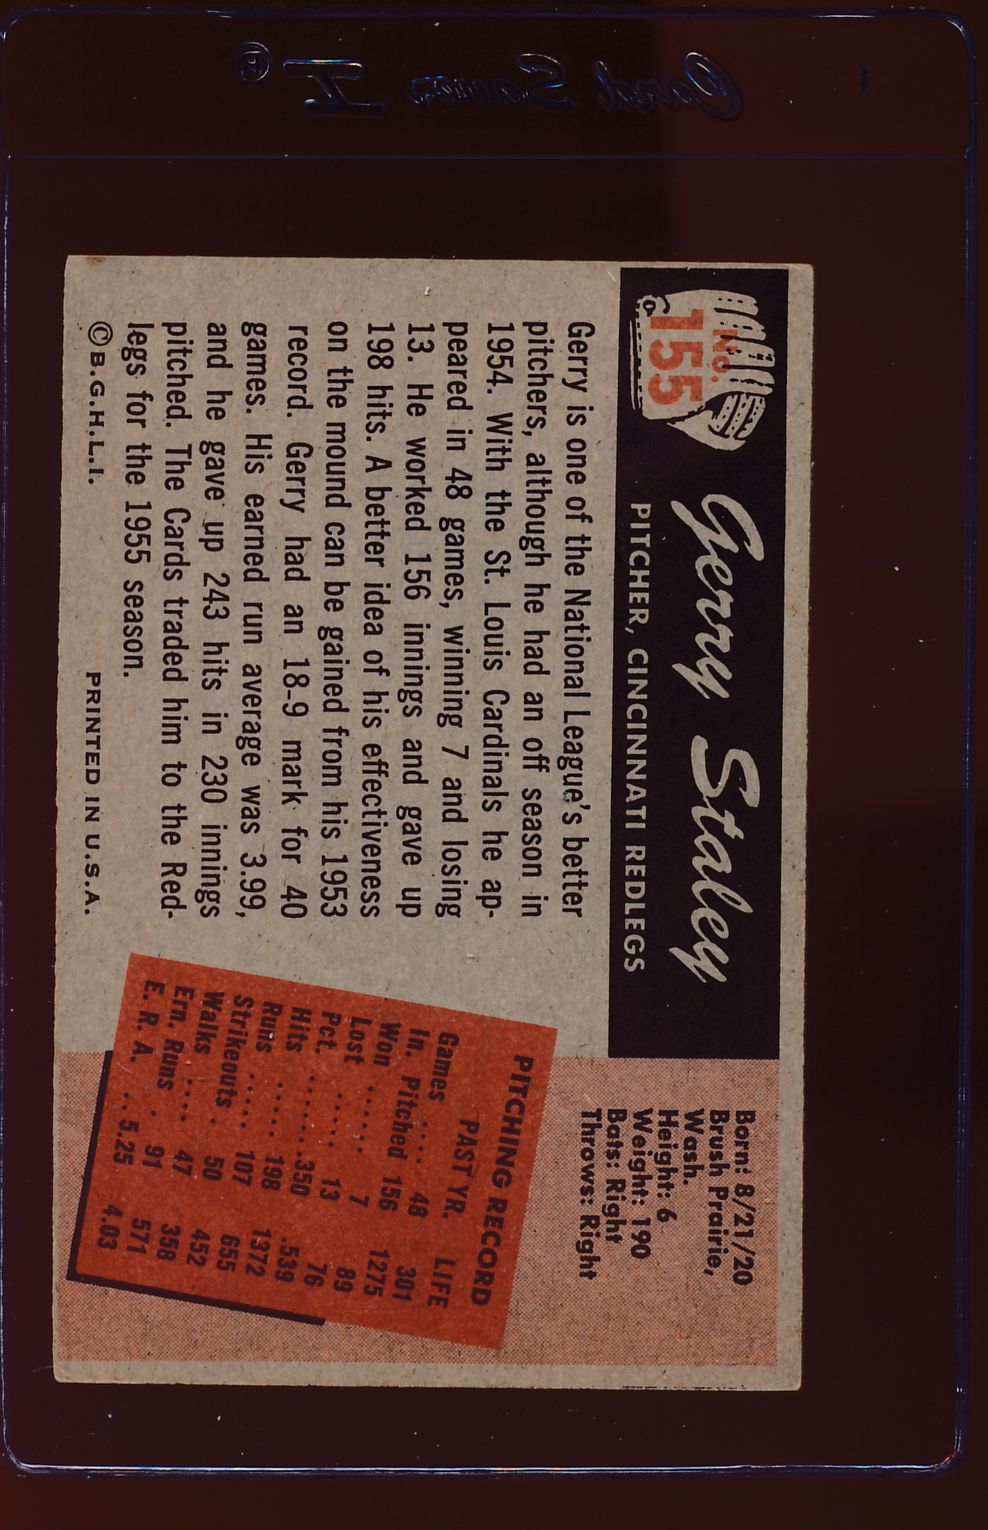 Card Saver I
No.
155
Gerry Staley
PITCHER, CINCINNATI REDLEGS
Gerry is one of the National League's better
pitchers, although he had an off season in
1954. With the St. Louis Cardinals he ap-
peared in 48 games, winning 7 and losing
13. He worked 156 innings and gave up
198 hits. A better idea of his effectiveness
on the mound can be gained from his 1953
record. Gerry had an 18-9 mark for 40
games. His earned run average was 3.99,
and he gave up 243 hits in 230 innings
pitched. The Cards traded him to the Red-
legs for the 1955 season.
© B.G.H.L.I.
PRINTED IN U.S.A.
Born: 8/21/20
Brush Prairie,
Wash.
Height: 6
Weight: 190
Bats: Right
Throws: Right
PITCHING RECORD
PAST YR. LIFE
Games .... 48 301
In. Pitched 156 1275
Won ..... 7 89
Lost ..... 13 76
Pct. ...... .350 .539
Hits ...... 198 1372
Runs ..... 107 655
Strikeouts . 50 452
Walks .... 47 358
Ern. Runs . 91 571
E. R. A. .. 5.25 4.03